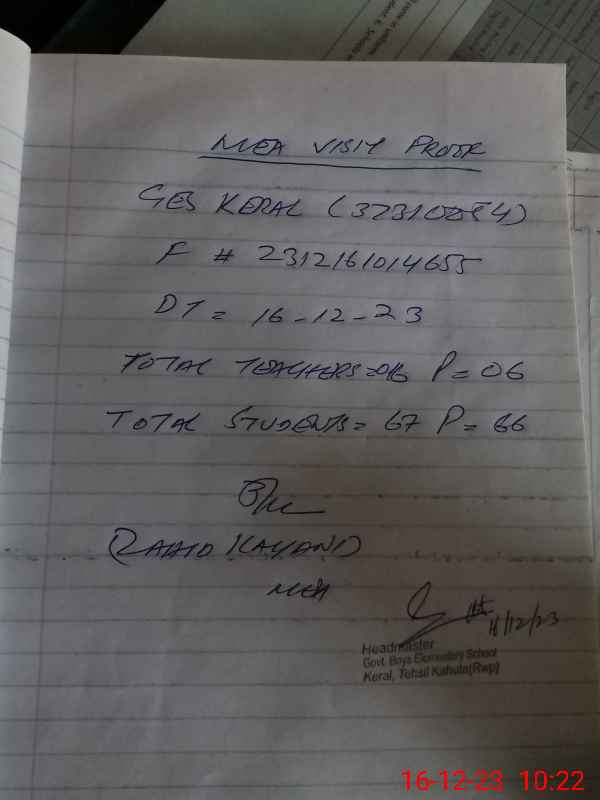 MEA VISIT PROOF
GES KERAL (37310084)
F # 2312161014655
DT = 16-12-23
TOTAL TEACHERS = 06 P = 06
TOTAL STUDENTS = 67 P = 66
MEA
16/12/23
Headmaster
Govt. Boys Elementary School
Keral, Tehsil Kahuta(Rwp)
16-12-23 10:22